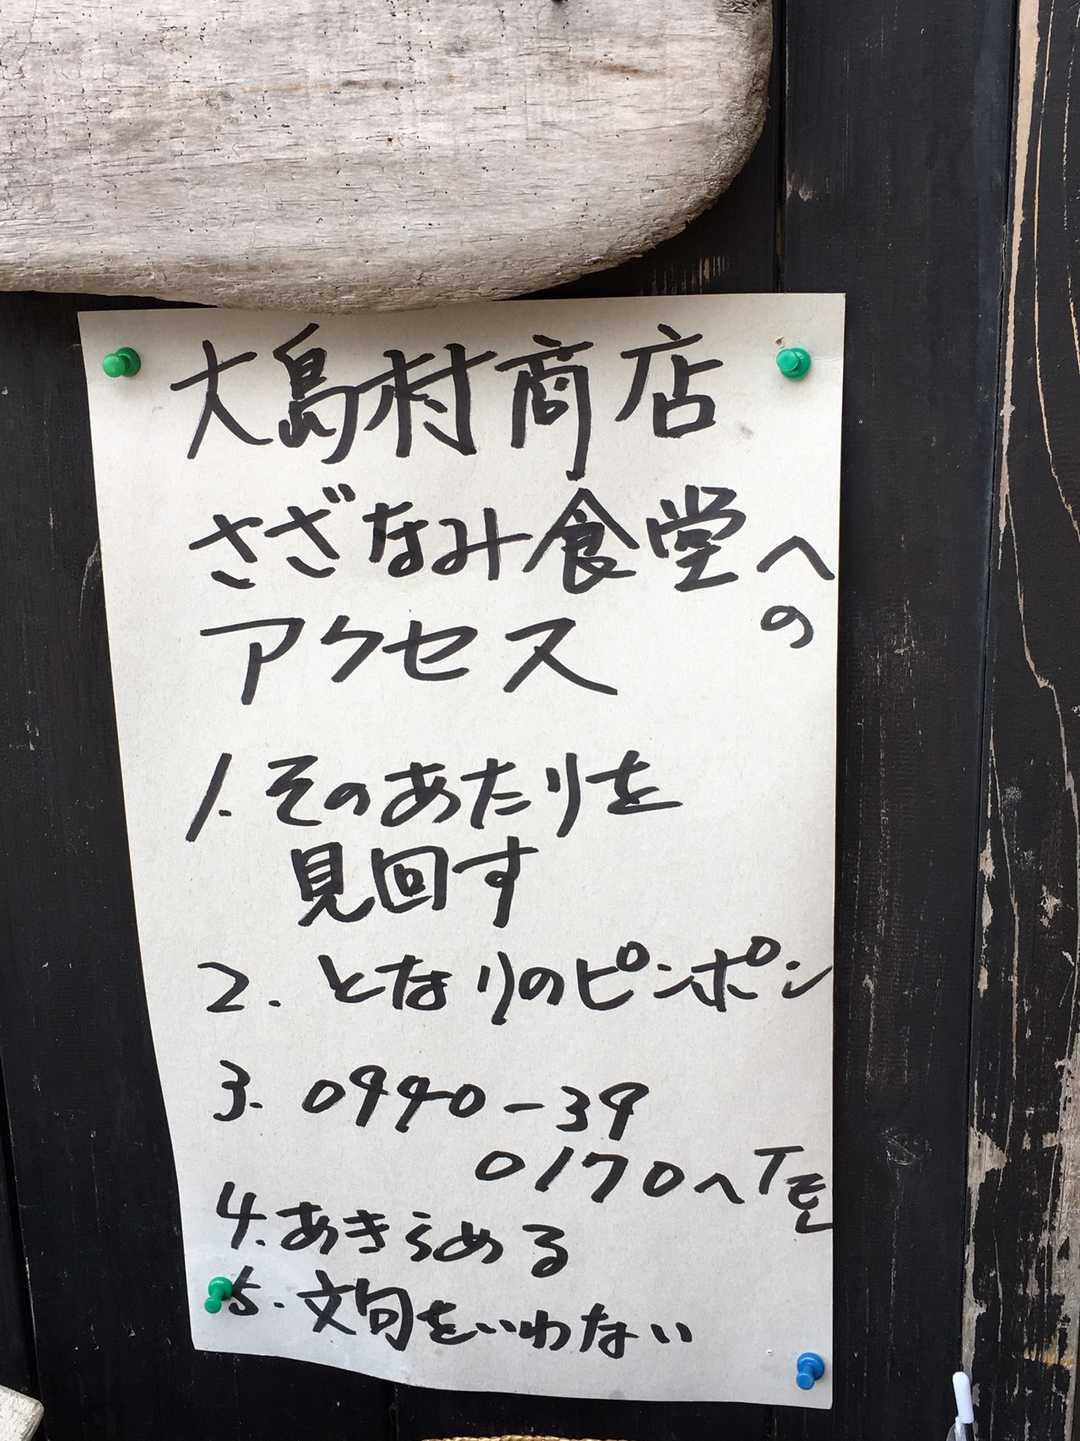 大島村商店
さざなみ食堂への
アクセス
1. そのあたりを
見回す
2. となりのピンポン
3. 0990-39
0170へTEL
4. あきらめる
5. 文句をいわない